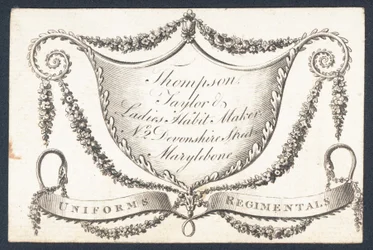 Thompson
Taylor &
Ladies Habit Maker
Devonshire Street
Marylebone
UNIFORMS REGIMENTALS